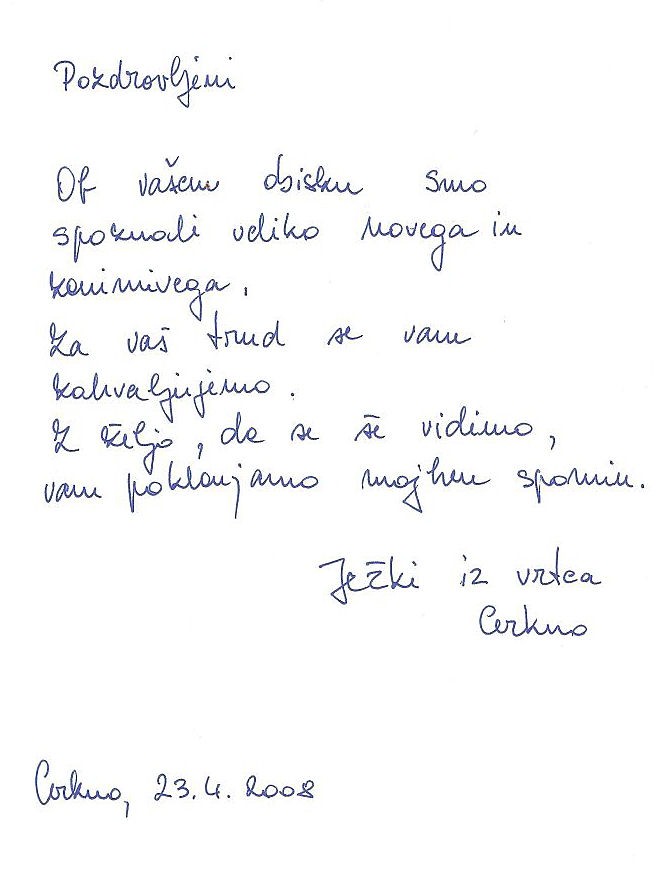 Pozdravljeni
Ob vašem obisku smo
spoznali veliko novega in
zanimivega.
Za vaš trud se vam
zahvaljujemo.
Z željo, da se še vidimo,
vam poklanjamo majhen spomin.
Ježki iz vrtca
Cerkno
Cerkno, 23.4.2008